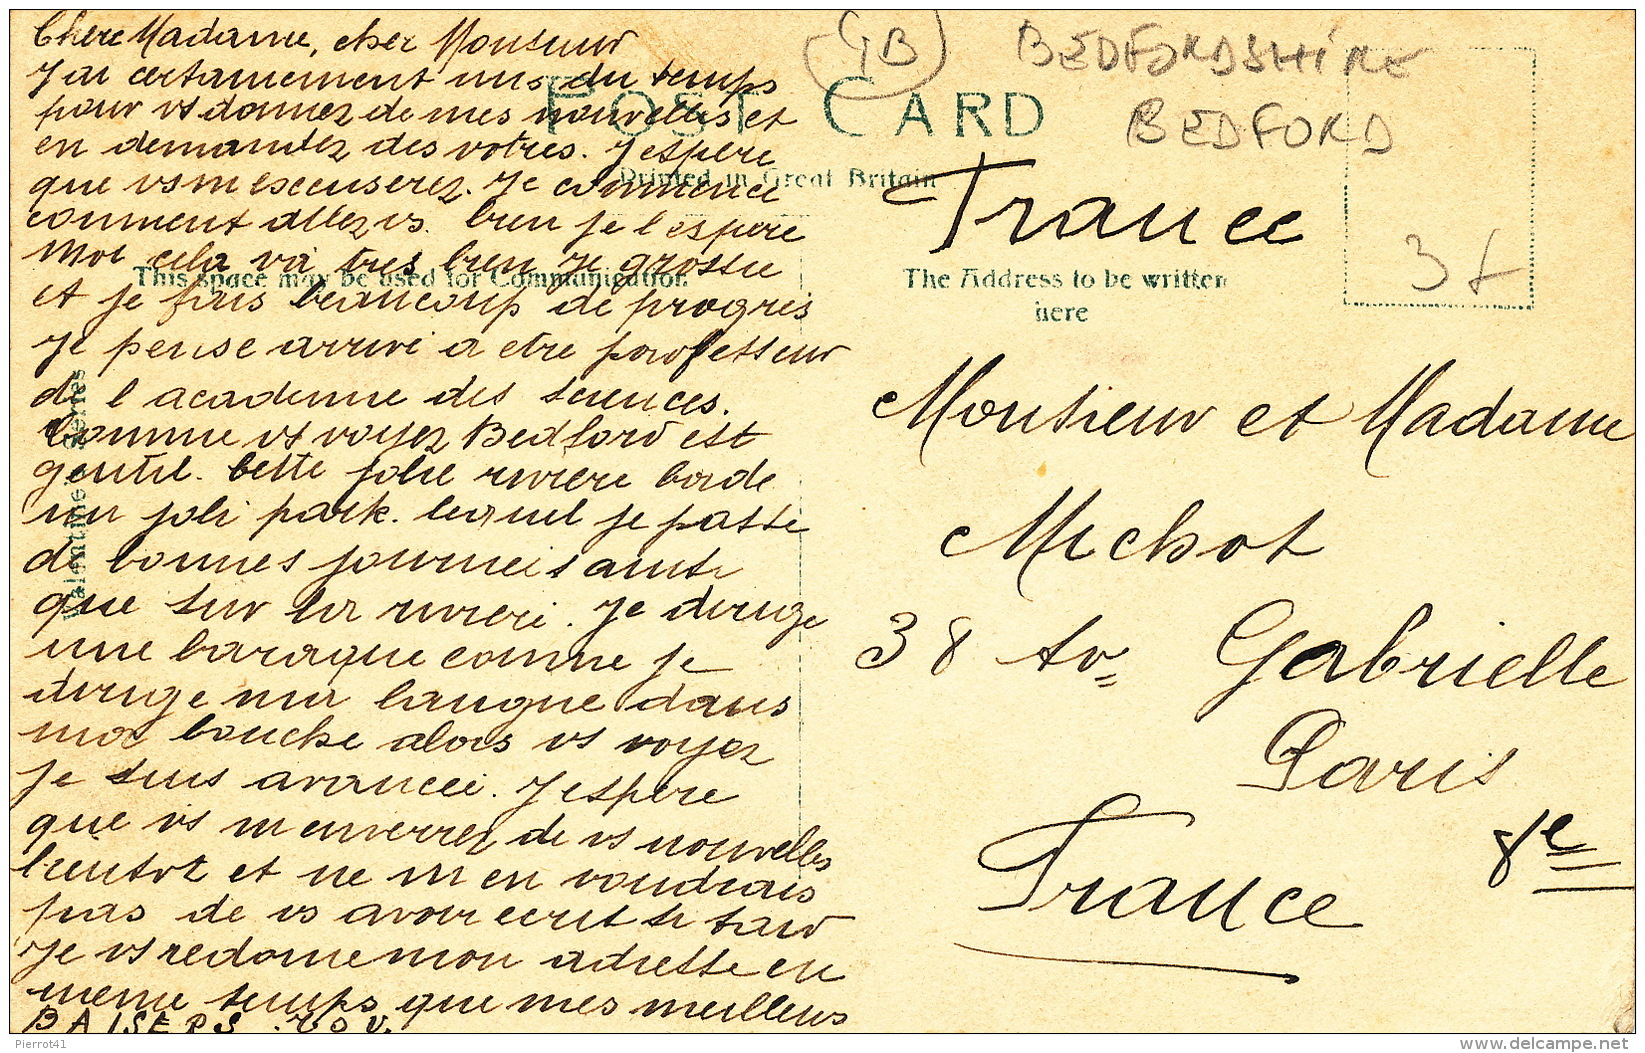 Chere Madame, cher Monsieur
J'ai certainement mis du temps
pour vs donnez de mes nouvelles et
en demandez des votres. J espere
que vs m excuserez. Je commence
comment allez vs. bien je l espere
Moi cela va tres bien je grossie
et je fais beaucoup de progres
Je pense arrive a etre professeur
de l academie des sciences.
Comme vs voyez Bedford est
gentil. Cette jolie riviere borde
un joli park. lequel je passe
de bonnes journeis ainsi
que sur la riviere. Je dirige
une baraque comme je
dirige ma langue dans
ma bouche alors vs voyez
je suis avancée. J espere
que vs m enverrez de vs nouvelles
bientot et ne m en voudrais
pas de vs avoir ecrit si tard
Je vs redonne mon adresse en
meme temps que mes meilleurs
BAISERS
GB
BEDFORDSHIRE
BEDFORD
POST CARD
Printed in Great Britain
This space may be used for Communication
The Address to be written
here
Valentine's Series
3f
France
Monsieur et Madame
Michot
38 Av. Gabrielle
Paris
8e
France
Pierrot41
delcampe.net